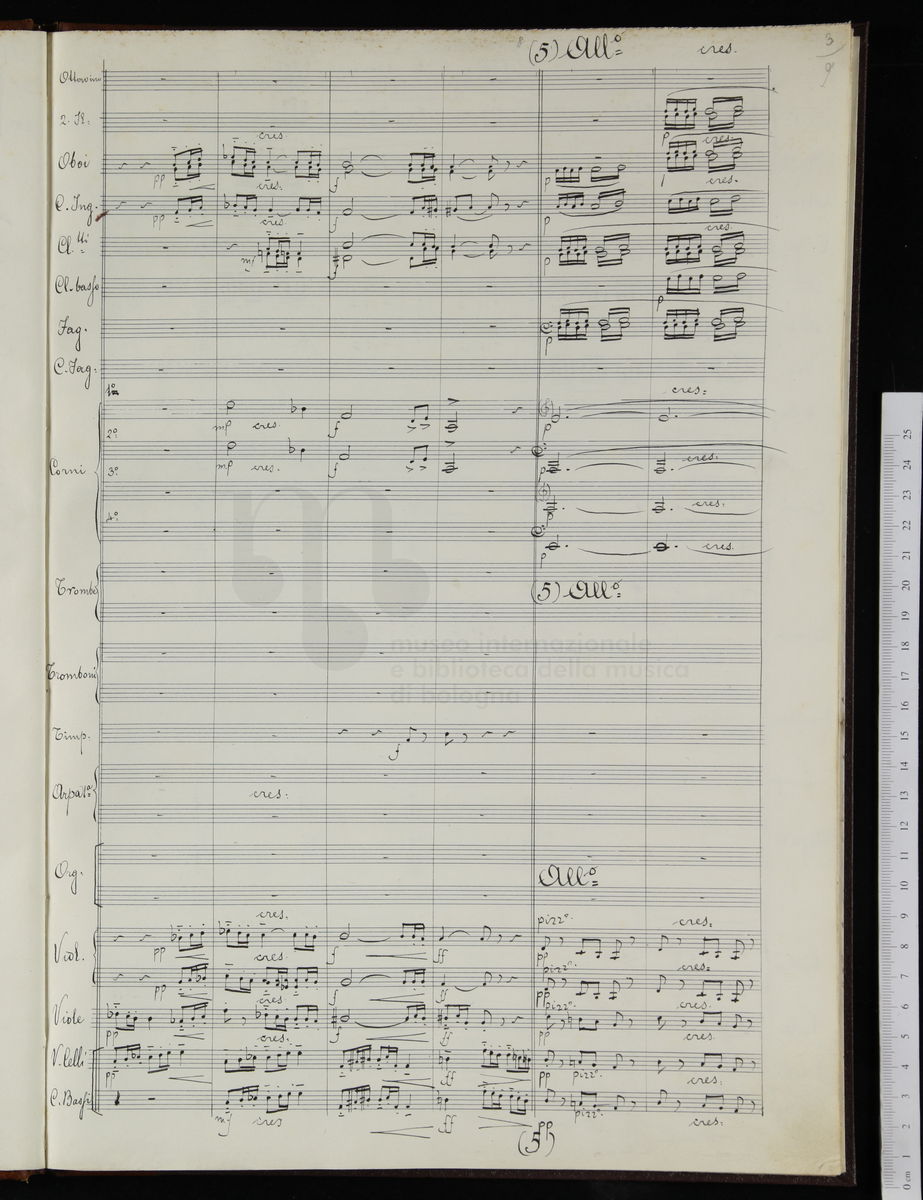 (5) All.º cres. 3
9
Ottavino
2. Fl: cris
p cres.
Oboi pp cres. f p cres.
C. Ing. pp cres. f p cres.
Cl.tti mf f p
Cl. basso p
Fag. p
C. Fag:
1º cres:
Corni mp cres f p
2º mp cres. f p cres.
3º p cres:
4º p cres.
Trombe (5) All.º
museo internazionale
e biblioteca della musica
di bologna
Tromboni
Timp. f
Arpa 1ª cres:
Org. All.º
cres. pizz.º cres:
Viol. pp cres. f ff pp pizz.º cres:
pp cres f ff pp pizz.º cres:
Viole pp cres. f ff pp cres
V. Celli pp ff pp pizz.º cres:
C. Bassi mf cres ff pp pizz.º cres:
(5)
0 cm 1 2 3 4 5 6 7 8 9 10 11 12 13 14 15 16 17 18 19 20 21 22 23 24 25